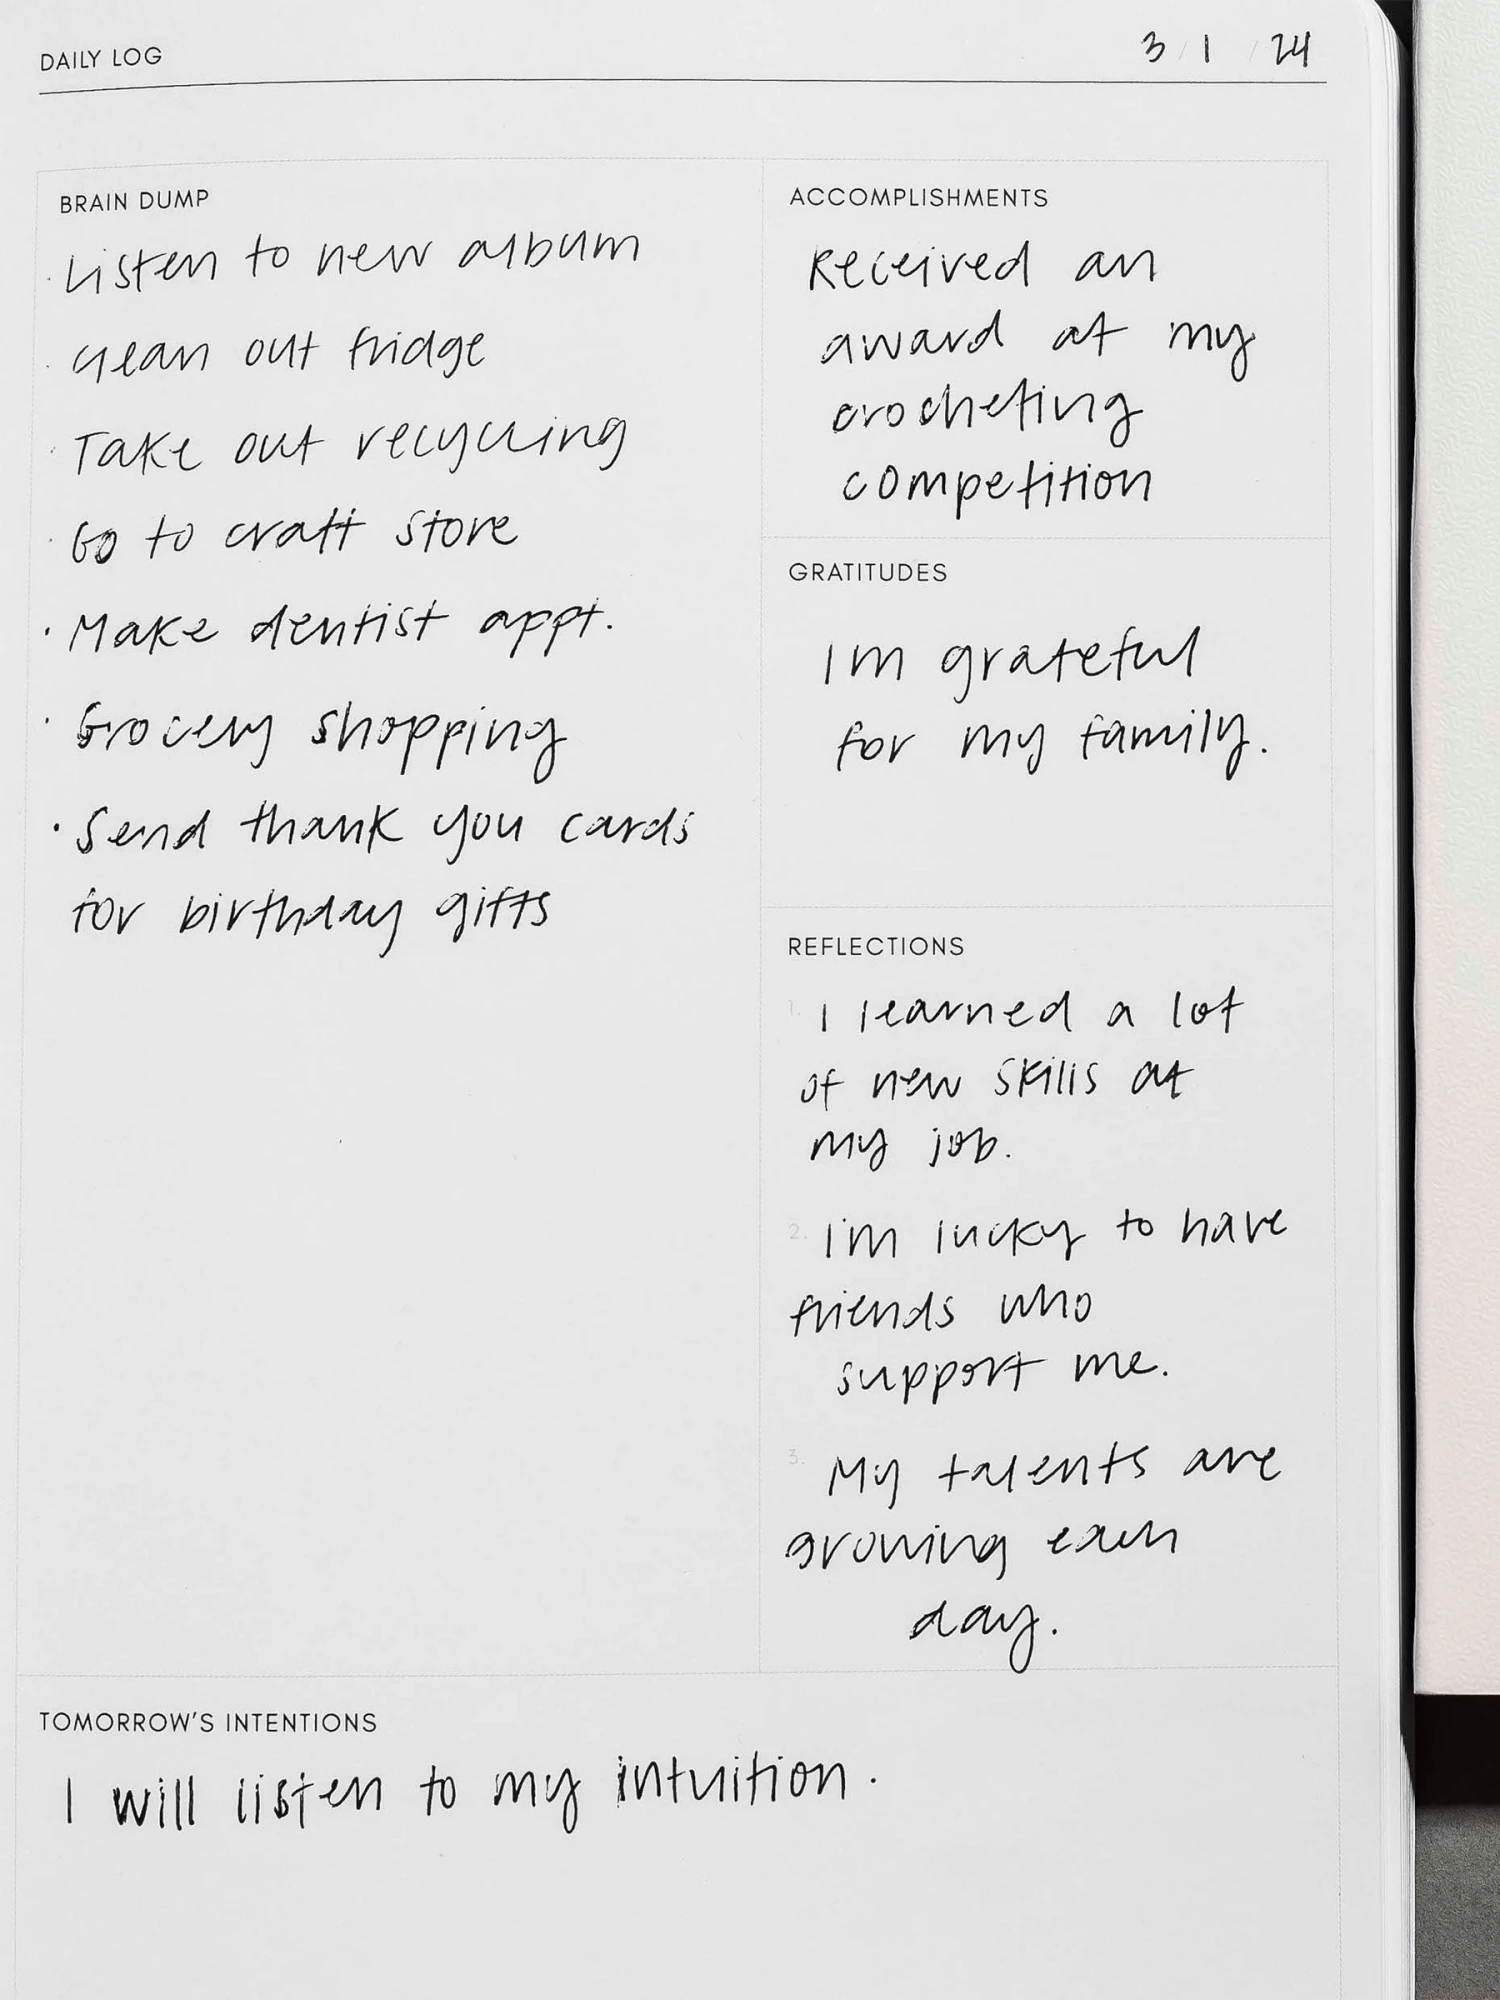 DAILY LOG
3 / 1 / 24
BRAIN DUMP
· Listen to new album
· Clean out fridge
· Take out recycling
· Go to craft store
· Make dentist appt.
· Grocery shopping
· Send thank you cards
for birthday gifts
ACCOMPLISHMENTS
Received an
award at my
crocheting
competition
GRATITUDES
Im grateful
for my family.
REFLECTIONS
1. I learned a lot
of new skills at
my job.
2. I'm lucky to have
friends who
support me.
3. My talents are
growing each
day.
TOMORROW'S INTENTIONS
I will listen to my intuition.